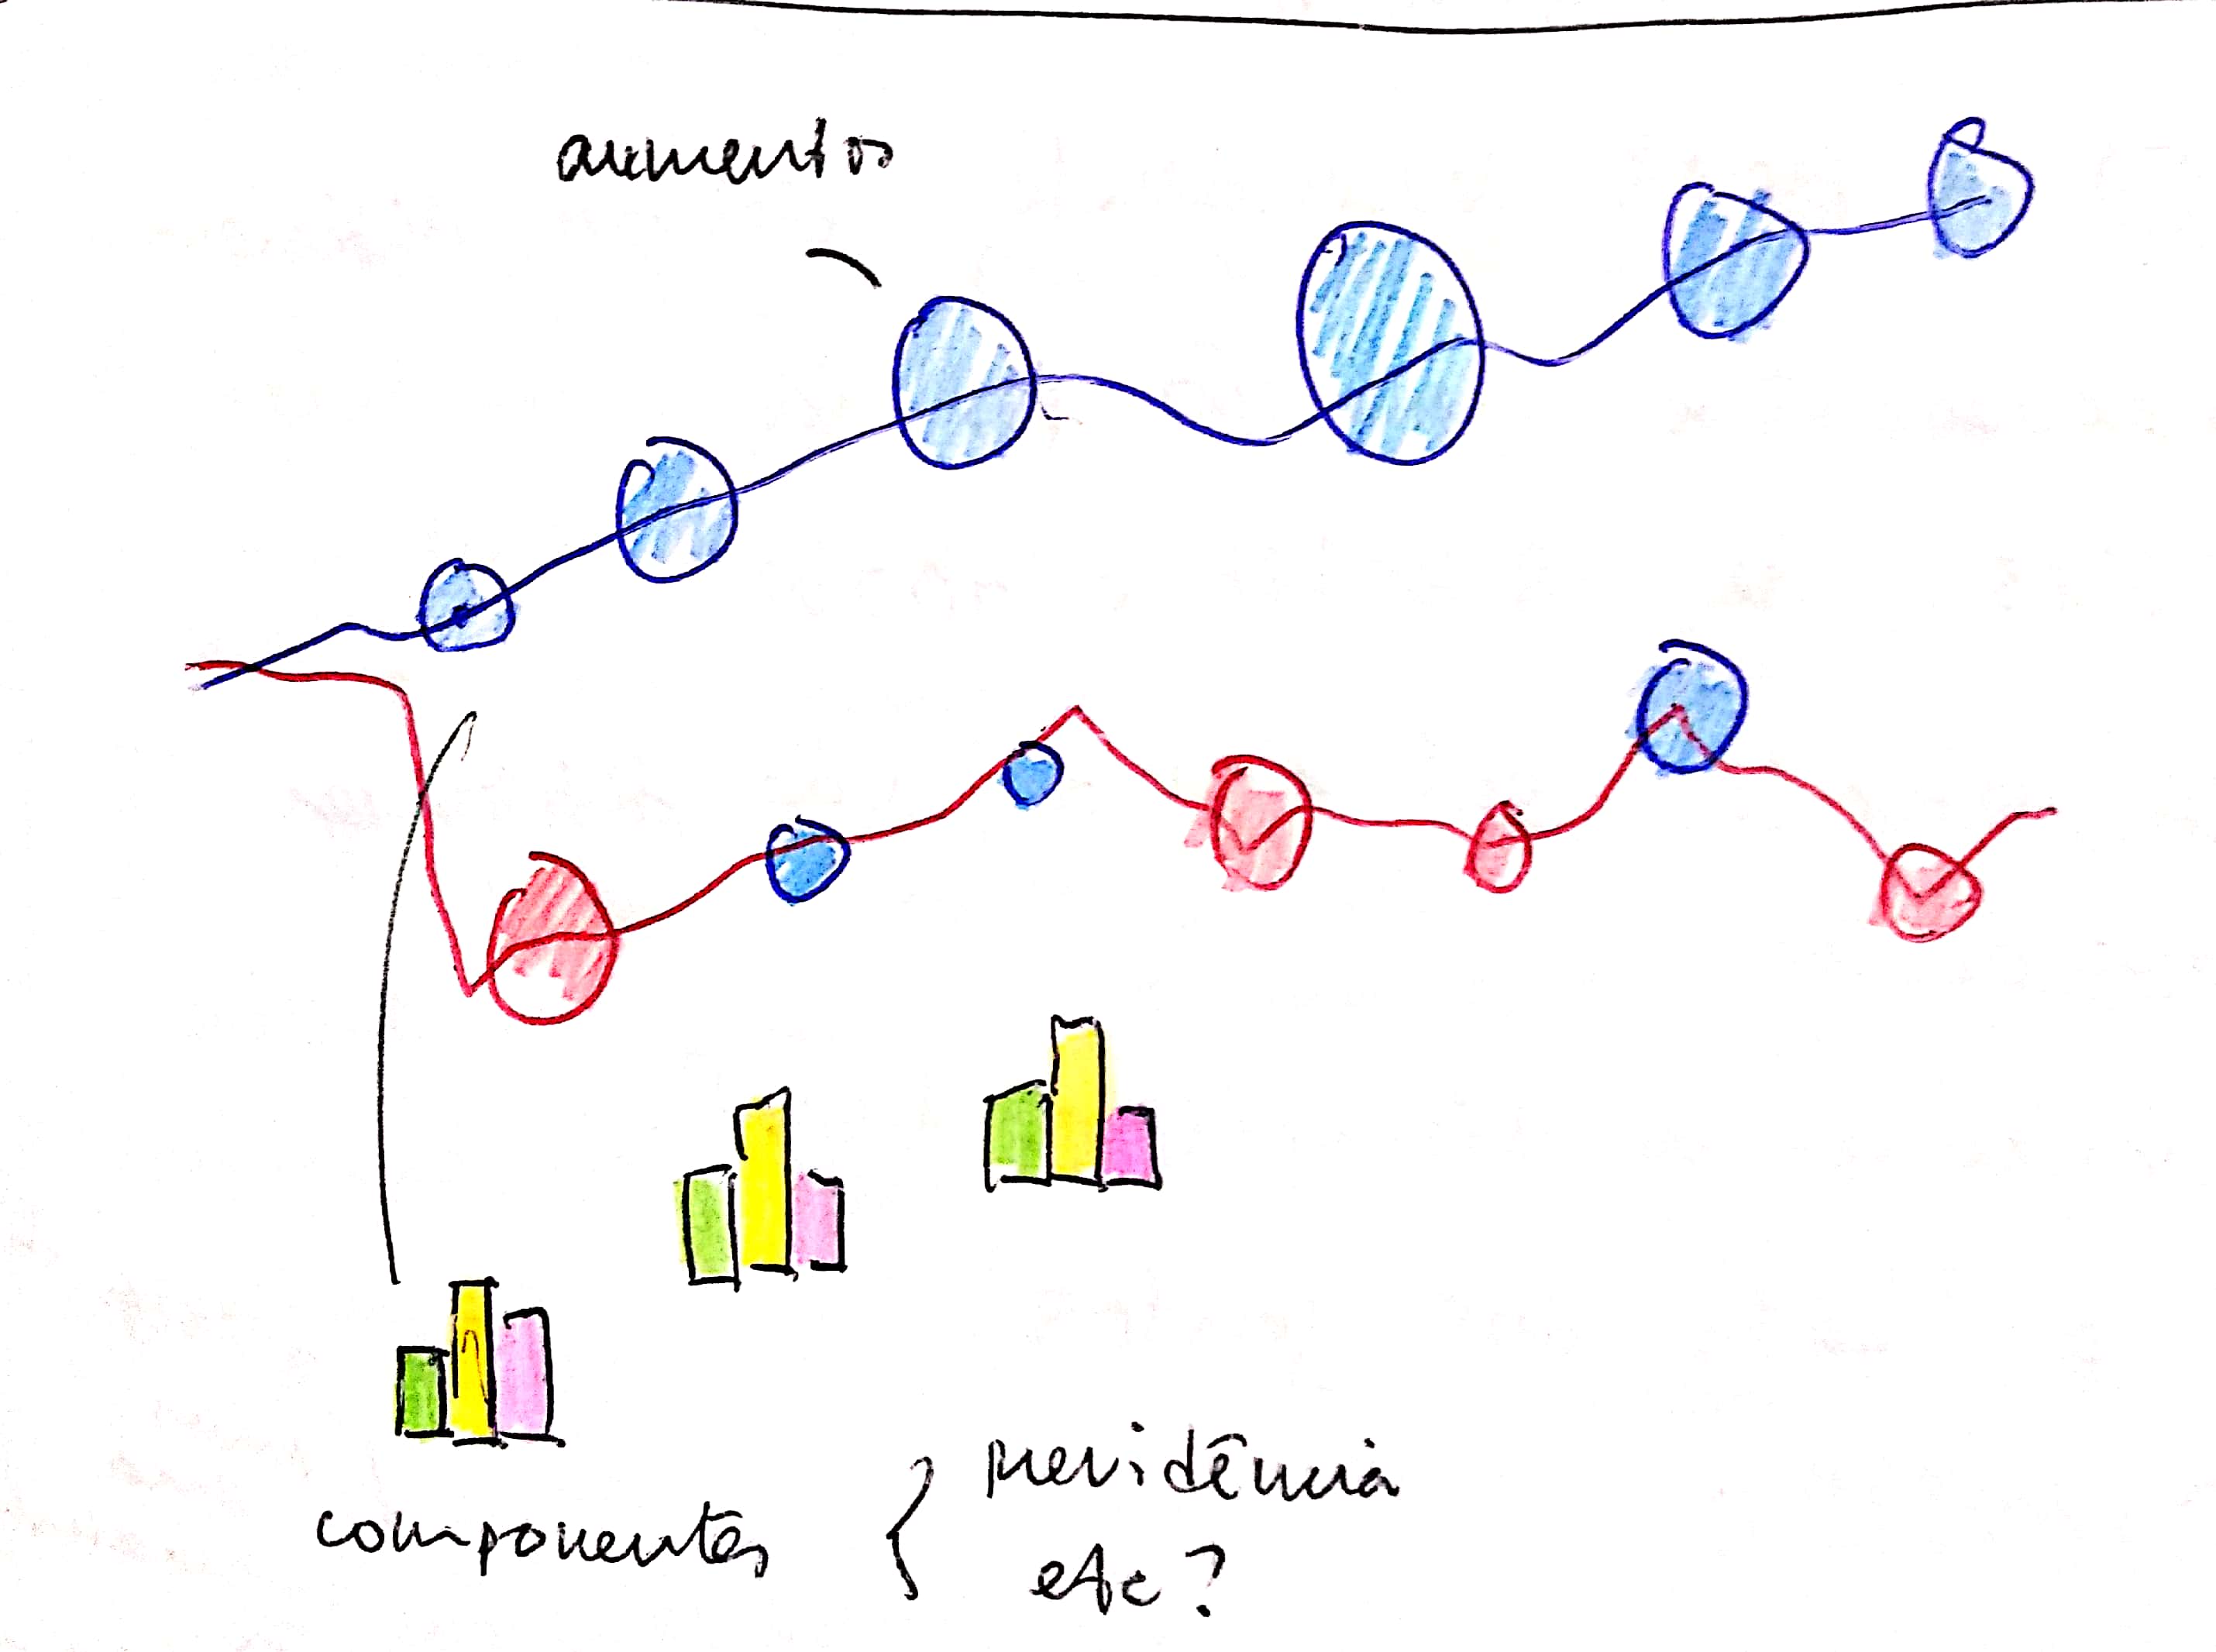 aumentos
componentes { previdência
etc?